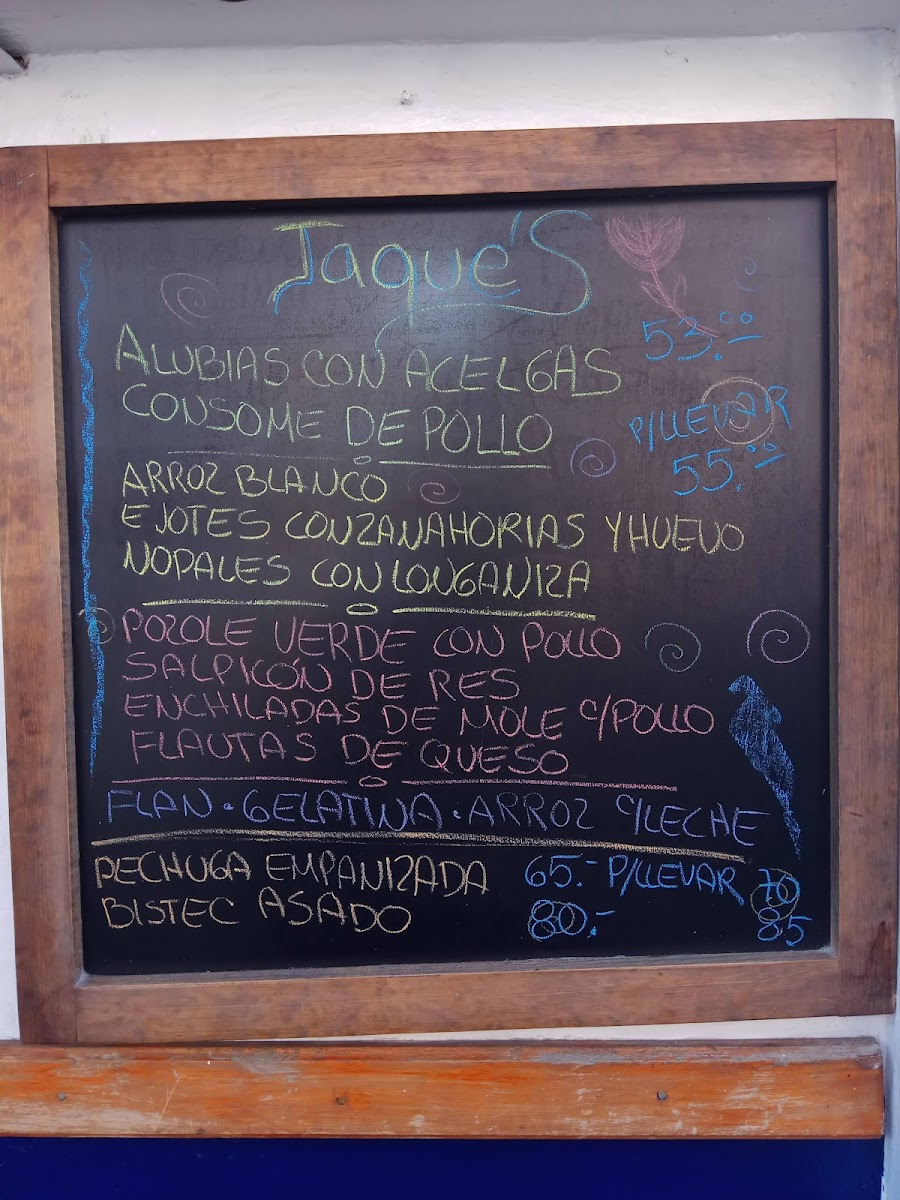 Jaqué'S
53.00
ALUBIAS CON ACELGAS
CONSOME DE POLLO
P/LLEVAR
55.00
ARROZ BLANCO
EJOTES CON ZANAHORIAS Y HUEVO
NOPALES CON LONGANIZA
POZOLE VERDE CON POLLO
SALPICÓN DE RES
ENCHILADAS DE MOLE C/POLLO
FLAUTAS DE QUESO
FLAN · GELATINA · ARROZ C/LECHE
PECHUGA EMPANIZADA 65.- P/LLEVAR 70
BISTEC ASADO 80.- 85